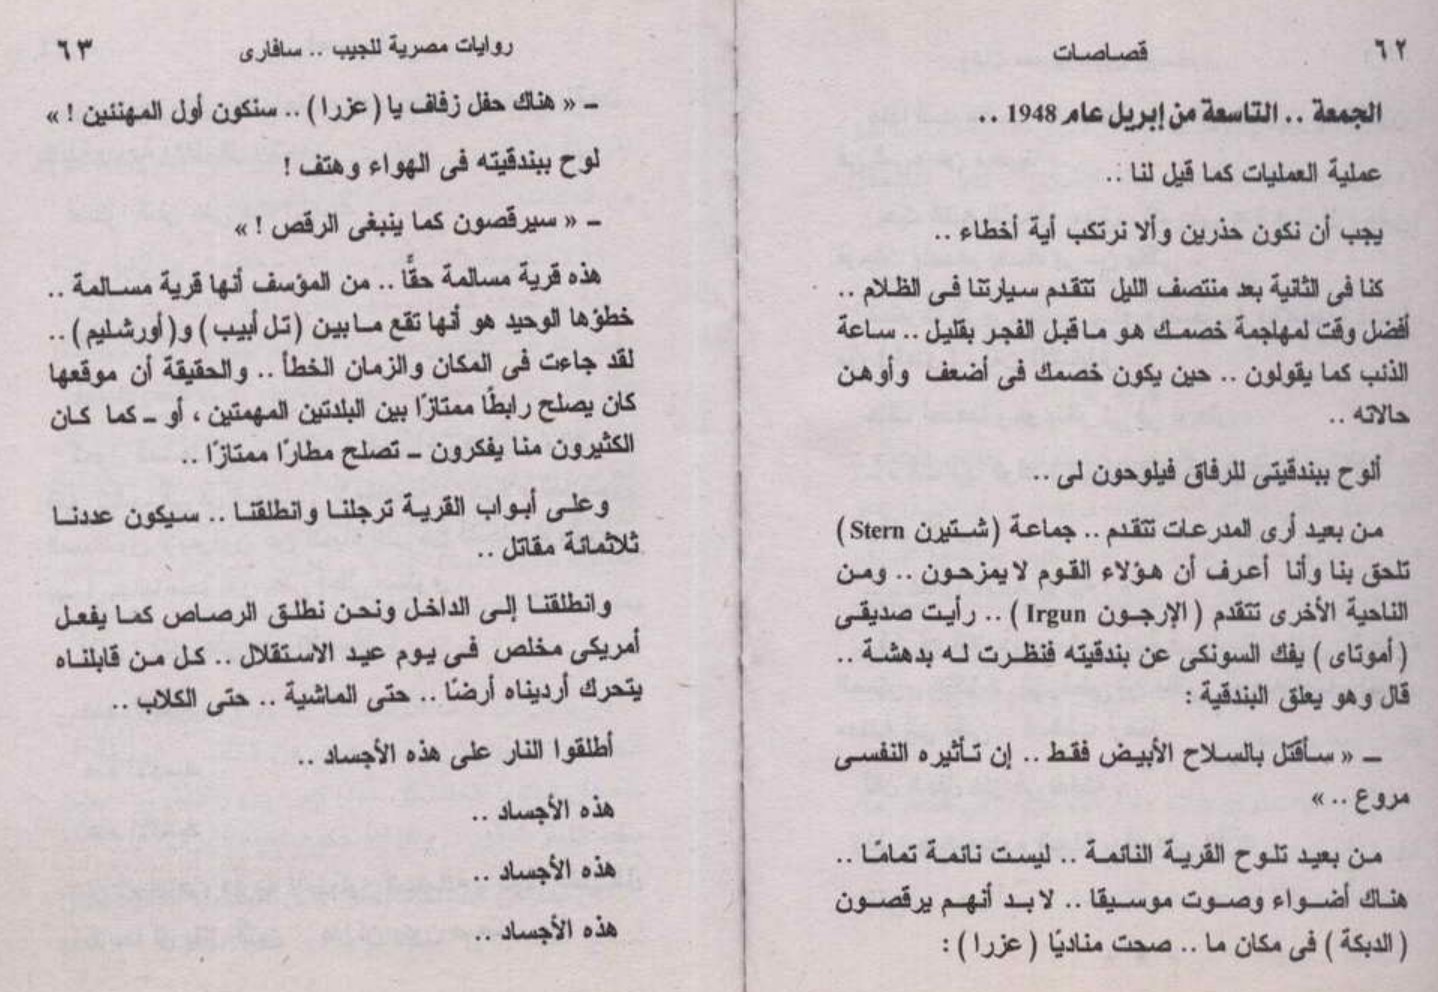 ٦٢
قصاصات
الجمعة .. التاسعة من إبريل عام 1948 ..
عملية العمليات كما قيل لنا ..
يجب أن نكون حذرين وألا نرتكب أية أخطاء ..
كنا فى الثانية بعد منتصف الليل تتقدم سيارتنا فى الظلام ..
أفضل وقت لمهاجمة خصمك هو ماقبل الفجر بقليل .. ساعة
الذئب كما يقولون .. حين يكون خصمك فى أضعف وأوهن
حالاته ..
ألوح ببندقيتى للرفاق فيلوحون لى ..
من بعيد أرى المدرعات تتقدم .. جماعة (شتيرن Stern)
تلحق بنا وأنا أعرف أن هؤلاء القوم لايمزحون .. ومن
الناحية الأخرى تتقدم (الإرجون Irgun) .. رأيت صديقى
(أموتاى) يفك السونكى عن بندقيته فنظرت له بدهشة ..
قال وهو يعلق البندقية :
ــ « سأقتل بالسلاح الأبيض فقط .. إن تأثيره النفسى
مروع .. »
من بعيد تلوح القرية النائمة .. ليست نائمة تمامًا ..
هناك أضواء وصوت موسيقا .. لابد أنهم يرقصون
(الدبكة) فى مكان ما .. صحت مناديًا (عزرا) :
روايات مصرية للجيب .. سافارى
٦٣
ــ « هناك حفل زفاف يا (عزرا) .. سنكون أول المهنئين ! »
لوح ببندقيته فى الهواء وهتف !
ــ « سيرقصون كما ينبغى الرقص ! »
هذه قرية مسالمة حقًّا .. من المؤسف أنها قرية مسالمة ..
خطؤها الوحيد هو أنها تقع مابين (تل أبيب) و(أورشليم) ..
لقد جاءت فى المكان والزمان الخطأ .. والحقيقة أن موقعها
كان يصلح رابطًا ممتازًا بين البلدتين المهمتين ، أو ــ كما كان
الكثيرون منا يفكرون ــ تصلح مطارًا ممتازًا ..
وعلى أبواب القرية ترجلنا وانطلقنا .. سيكون عددنا
ثلاثمائة مقاتل ..
وانطلقنا إلى الداخل ونحن نطلق الرصاص كما يفعل
أمريكى مخلص فى يوم عيد الاستقلال .. كل من قابلناه
يتحرك أرديناه أرضًا .. حتى الماشية .. حتى الكلاب ..
أطلقوا النار على هذه الأجساد ..
هذه الأجساد ..
هذه الأجساد ..
هذه الأجساد ..